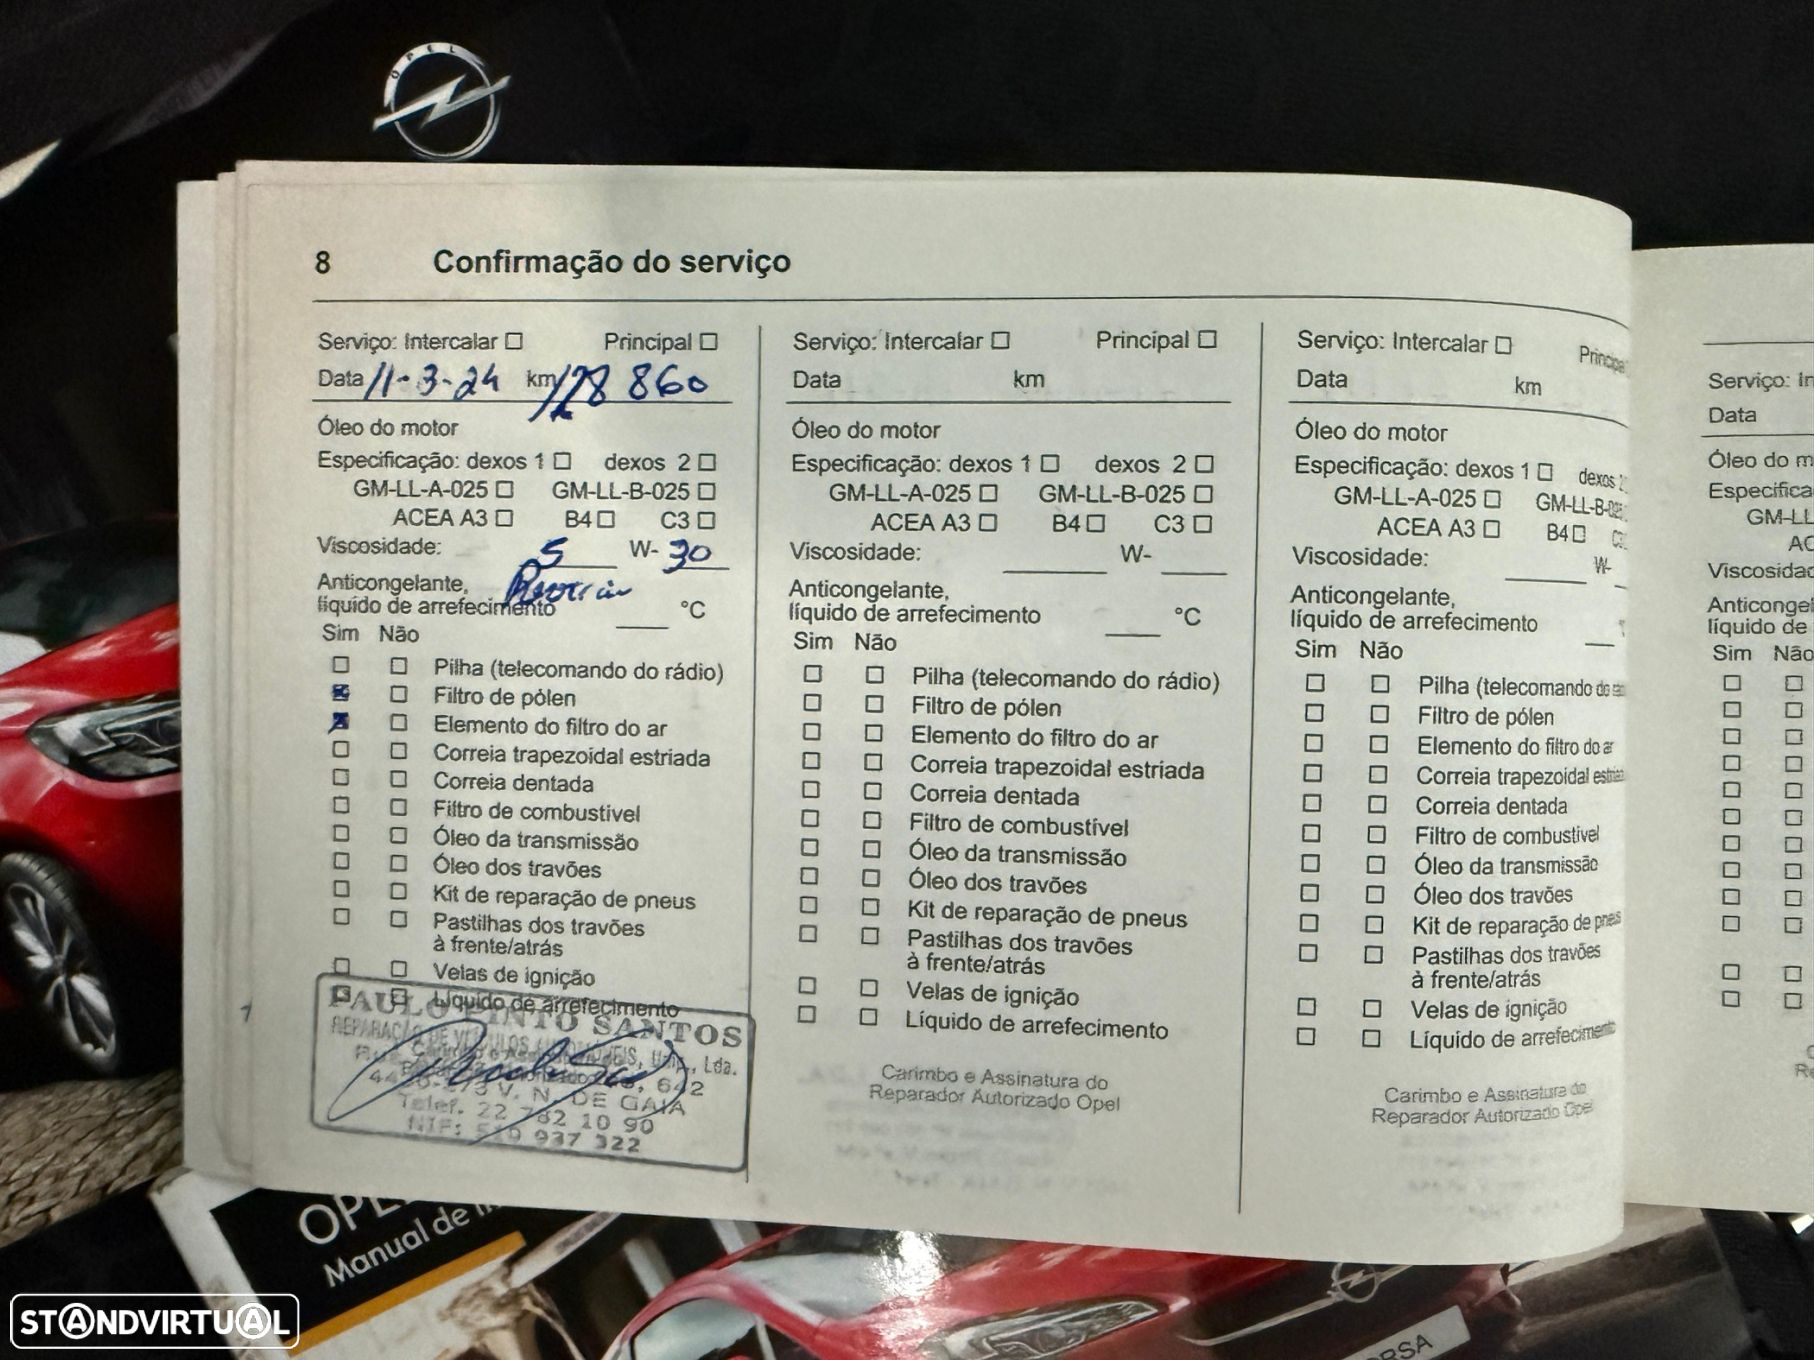 OPEL
8 Confirmação do serviço
Serviço: Intercalar Principal
Data 11-3-24 km 128 860
Óleo do motor
Especificação: dexos 1 dexos 2
GM-LL-A-025 GM-LL-B-025
ACEA A3 B4 C3
Viscosidade: 5 W- 30
Anticongelante,
líquido de arrefecimento °C
Sim Não
Pilha (telecomando do rádio)
Filtro de pólen
Elemento do filtro do ar
Correia trapezoidal estriada
Correia dentada
Filtro de combustível
Óleo da transmissão
Óleo dos travões
Kit de reparação de pneus
Pastilhas dos travões
à frente/atrás
Velas de ignição
Líquido de arrefecimento
PAULO PINTO SANTOS
REPARAÇÃO DE VEÍCULOS AUTOMÓVEIS, Unip., Lda.
642
V. N. DE GAIA
Telef. 22 782 10 90
NIF: 510 937 322
Serviço: Intercalar Principal
Data km
Óleo do motor
Especificação: dexos 1 dexos 2
GM-LL-A-025 GM-LL-B-025
ACEA A3 B4 C3
Viscosidade: W-
Anticongelante,
líquido de arrefecimento °C
Sim Não
Pilha (telecomando do rádio)
Filtro de pólen
Elemento do filtro do ar
Correia trapezoidal estriada
Correia dentada
Filtro de combustível
Óleo da transmissão
Óleo dos travões
Kit de reparação de pneus
Pastilhas dos travões
à frente/atrás
Velas de ignição
Líquido de arrefecimento
Carimbo e Assinatura do
Reparador Autorizado Opel
Serviço: Intercalar Principa
Data km
Óleo do motor
Especificação: dexos 1 dexos 2
GM-LL-A-025 GM-LL-B-025
ACEA A3 B4
Viscosidade: W-
Anticongelante,
líquido de arrefecimento
Sim Não
Pilha (telecomando do
Filtro de pólen
Elemento do filtro do ar
Correia trapezoidal estriada
Correia dentada
Filtro de combustível
Óleo da transmissão
Óleo dos travões
Kit de reparação de pneus
Pastilhas dos travões
à frente/atrás
Velas de ignição
Líquido de arrefecimento
Carimbo e Assinatura do
Reparador Autorizado Opel
Serviço: In
Data
Óleo do m
Especifica
GM-LL
AC
Viscosidad
Anticongel
líquido de
Sim Não
OPE
Manual de
STANDVIRTUAL
ORSA